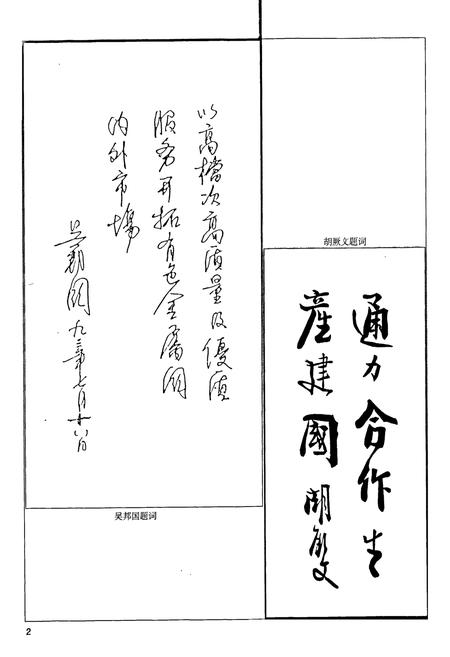 以高檔次高质量及優质
服务开拓有色金屬国
内外市場
吴邦国九三年七月十八日
吴邦国题词
胡厥文题词
通力合作生
產建國 胡厥文
2